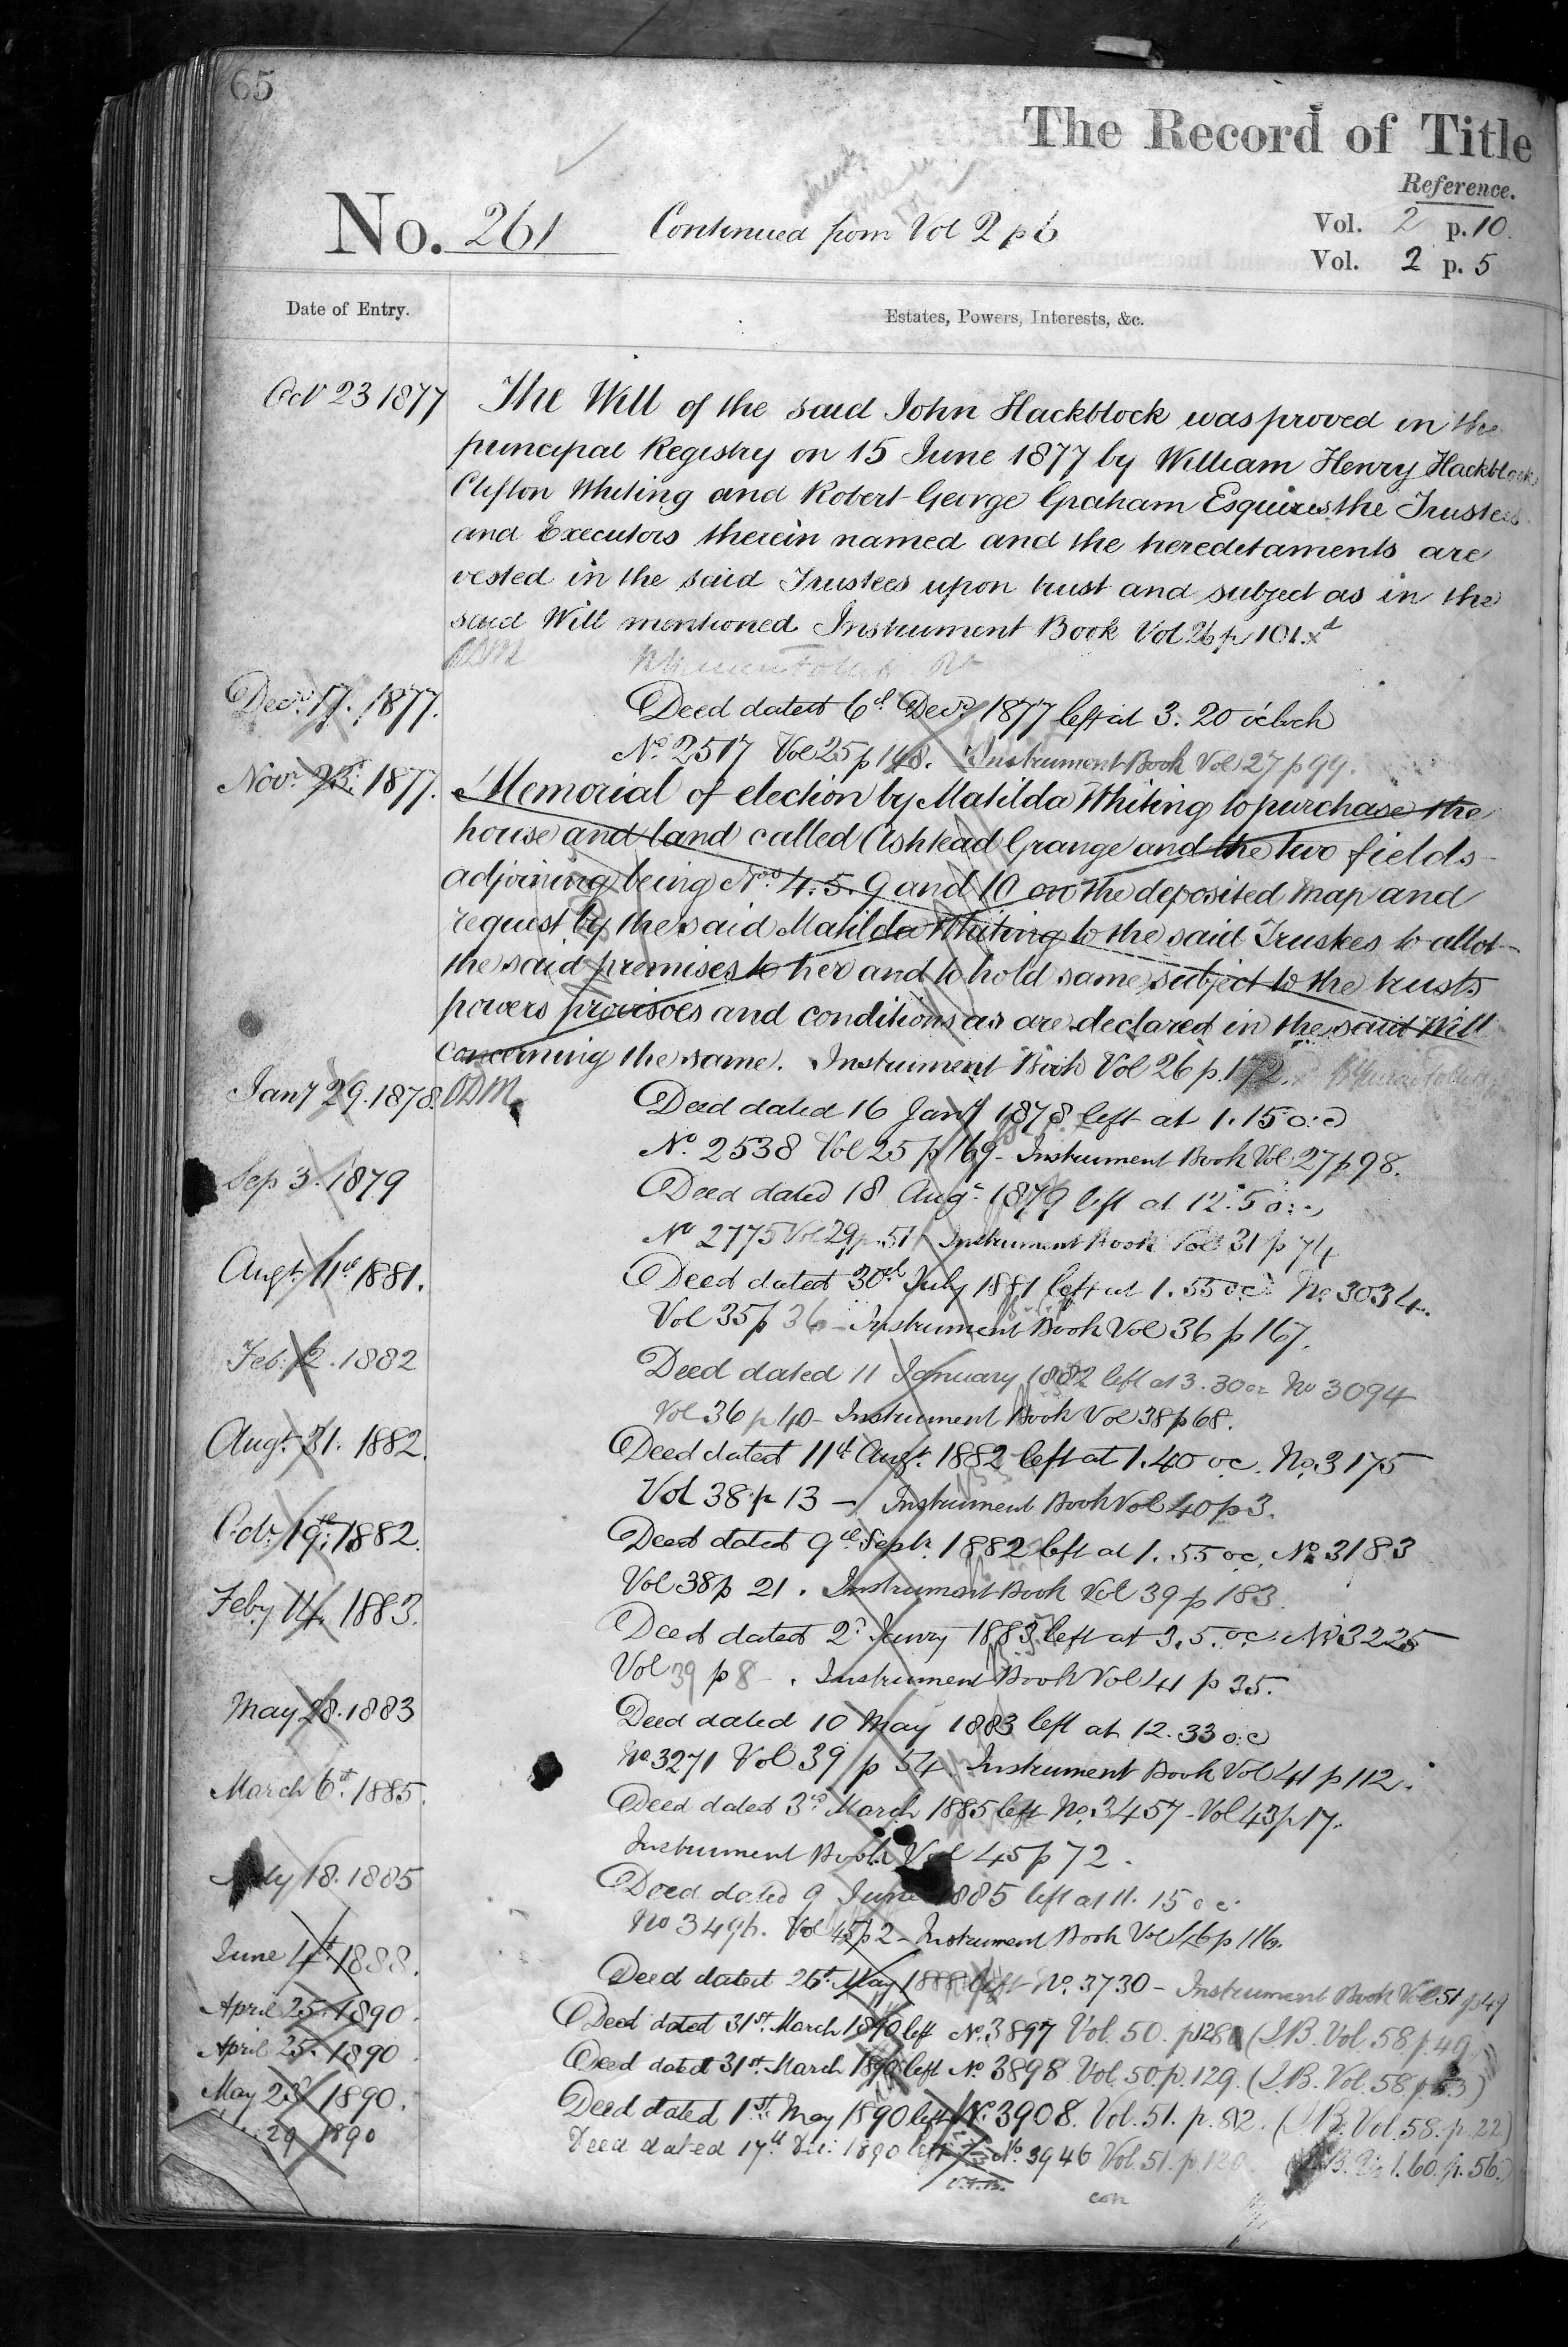 65
The Record of Title
Reference.
No. 261 Continued from Vol 2 p 6
Vol. 2 p. 10.
Vol. 2 p. 5
Date of Entry.
Estates, Powers, Interests, &c.
Oct 23 1877 The Will of the said John Hackblock was proved in the
principal Registry on 15 June 1877 by William Henry Hackblock
Clifton Whiting and Robert George Graham Esquires the Trustees
and Executors therein named and the hereditaments are
vested in the said Trustees upon trust and subject as in the
said Will mentioned Instrument Book Vol 26 p 101.
Decr. 17. 1877. Deed dated 6th Decr. 1877 left at 3. 20 o'clock
No. 2517 Vol 25 p 148. Instrument Book Vol 27 p 99.
Novr. 23. 1877. Memorial of election by Matilda Whiting to purchase the
house and land called Ashtead Grange and the two fields
adjoining being Nos. 4. 5. 9 and 10 on the deposited map and
request by the said Matilda Whiting to the said Trustees to allot
the said premises to her and to hold same subject to the trusts
powers provisoes and conditions as are declared in the said Will
concerning the same. Instrument Book Vol 26 p. 172.
Jany 29. 1878. ODM Deed dated 16 Jany 1878 left at 1. 15 o:c
No. 2538 Vol 25 p 169 - Instrument Book Vol 27 p 98.
Sep 3. 1879 Deed dated 18 Augt. 1879 left at 12. 5 o:c
No 2775 Vol 29 p. 51 Instrument Book Vol 31 p 74
Augt. 11th 1881. Deed dated 30th July 1881 left at 1. 55 oc No. 3034.
Vol 35 p 36 - Instrument Book Vol 36 p 167.
Feb. 2. 1882 Deed dated 11 January 1882 left at 3. 30 oc No 3094
Vol 36 p 40 - Instrument Book Vol 38 p 68.
Augt. 31. 1882. Deed dated 11th Augt. 1882 left at 1. 40 oc. No. 3175
Vol 38 p 13 - Instrument Book Vol 40 p 3.
Octr. 19th. 1882. Deed dated 9th Septr. 1882 left at 1. 55 oc. No. 3183
Vol 38 p 21. Instrument Book Vol 39 p 183.
Feby 14. 1883. Deed dated 2d Janry 1883 left at 3. 5. oc. No 3225
Vol 39 p 8 - . Instrument Book Vol 41 p 35.
May 28. 1883 Deed dated 10 May 1883 left at 12. 33 o:c
No. 3271 Vol 39 p 54. Instrument Book Vol 41 p 112.
March 6th. 1885. Deed dated 3rd March 1885 left No. 3457 - Vol 43 p 17.
Instrument Book Vol 45 p 72.
July 18. 1885 Deed dated 9 June 1885 left at 11. 15 oc
No 3496. Vol 45 p 2 - Instrument Book Vol 46 p 116.
June 4th. 1888. Deed dated 26th. May 1888 left No. 3730 - Instrument Book Vol 51 p 49
April 25. 1890. Deed dated 31st. March 1890 left No. 3897 Vol. 50. p 128 (I.B. Vol. 58 p. 49
April 25. 1890 Deed dated 31st. March 1890 left No 3898. Vol. 50. p. 129. (I.B. Vol. 58 p. 53)
May 23 1890. Deed dated 1st. May 1890 left No. 3908. Vol. 51. p. 82. (I.B. Vol. 58. p. 22)
29 1890 Deed dated 17th Dec: 1890 left No. 3946 Vol. 51. p. 120. I.B. Vol. 60. p. 56.)
con